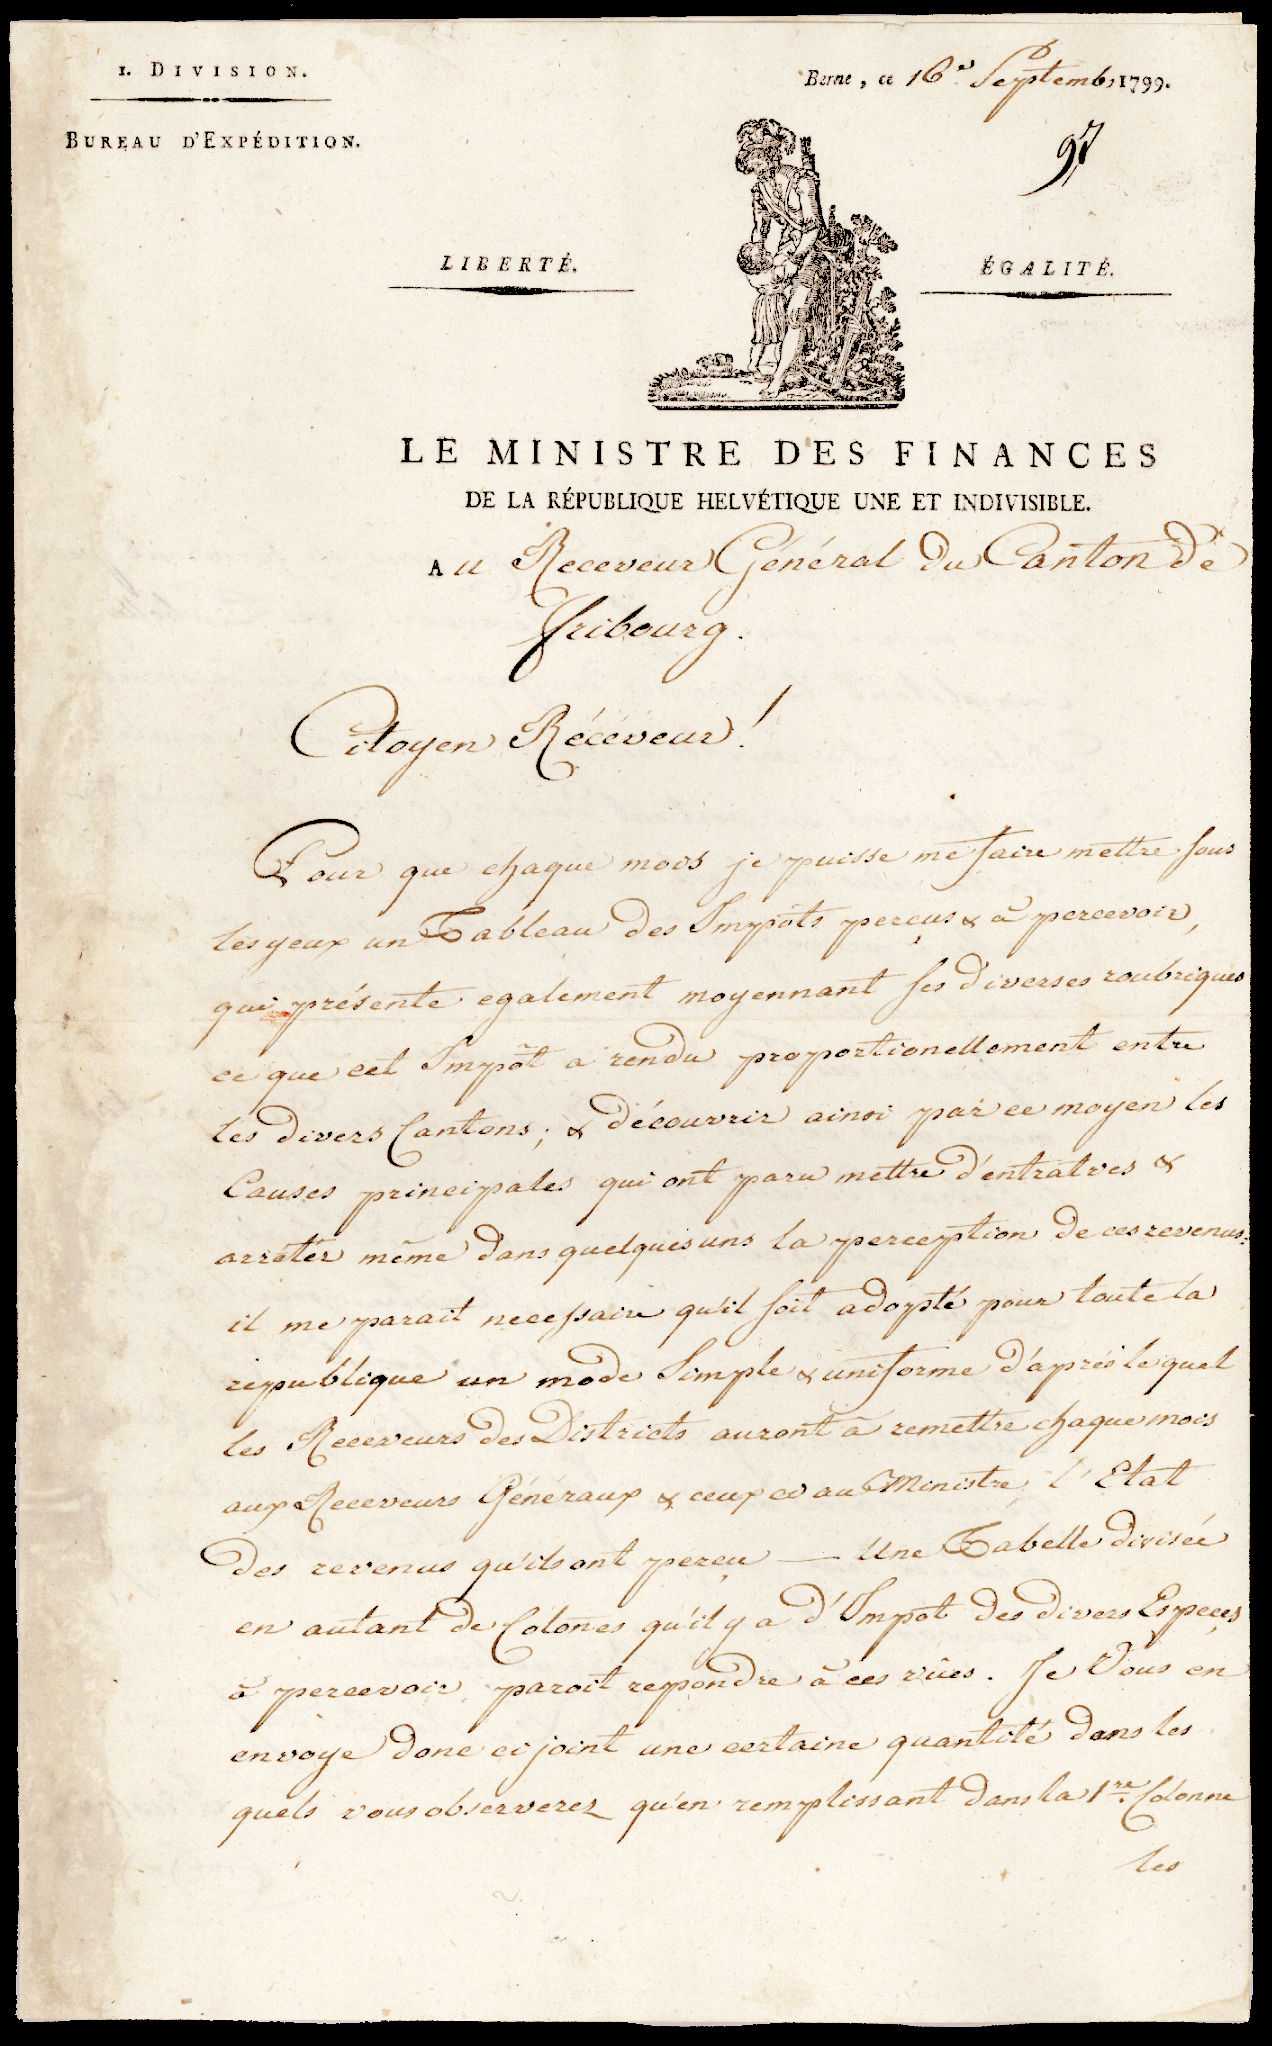 1. DIVISION.
BUREAU D'EXPÉDITION.
Berne, ce 16e Septemb, 1799.
97
LIBERTÉ.
ÉGALITÉ.
LE MINISTRE DES FINANCES
DE LA RÉPUBLIQUE HELVÉTIQUE UNE ET INDIVISIBLE.
Au Receveur Général du Canton de
Fribourg.
Citoyen Récéveur!
Pour que chaque mois je puisse me faire mettre sous
les yeux un Tableau des Impôts perçus & à percevoir,
qui présente egalement moyennant ses diverses roubriques
ce que cet Impôt a rendu proportionellement entre
les divers Cantons; & découvrir ainsi par ce moyen les
Causes principales qui ont paru mettre d'entratves &
arrêter même dans quelquesuns la perception de ces revenus:
il me parait necessaire qu'il soit adopté pour toute la
republique un mode simple & uniforme d'après lequel
les Receveurs des Districts auront à remettre chaque mois
aux Receveurs Généraux & ceux ci au Ministre, l'Etat
des revenus qu'ils ont perçu — Une Tabelle divisée
en autant de Colones qu'il y a d'Impot des divers Especes
à percevoir, paroit repondre à ces vûes. Je Vous en
envoye donc ci joint une certaine quantité dans les
quels vous observerez qu'en remplissant dans la 1re Colonne
les